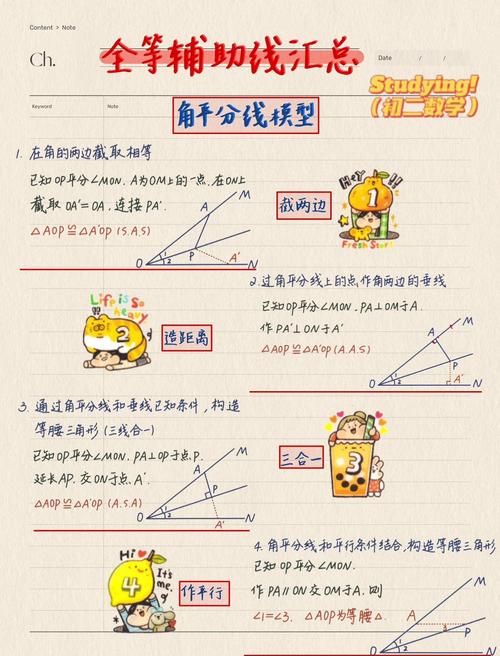 Content > Note
Ch.
全等辅助线汇总
Date / /
Studying!
(初二数学)
Keyword
Note
角平分线模型
1. 在角的两边截取相等
已知OP平分∠MON. A为OM上的一点, 在ON上
截取OA'=OA, 连接PA'.
△AOP≌△A'OP (S.A.S)
截两边
Hey!
1
Fresh Start
M
A
N
P
O
1
2
A'
2.过角平分线上的点,作角两边的垂线
已知OP平分∠MON. PA⊥OM于A.
作PA'⊥ON于A'
△AOP≌△A'OP (A.A.S)
Life is so
heavy
2
造距离
M
A
P
N
O
1
2
A'
3. 通过角平分线和垂线已知条件, 构造
等腰三角形(三线合一)
已知OP平分∠MON. PA⊥OP于点P.
延长AP. 交ON于点A'.
△AOP≌△A'OP (A.S.A)
三合一
3
M
A
N
P
O
1
2
A'
4. 角平分线和平行条件结合, 构造等腰三角形
已知OP平分∠MON.
作PA∥ON交OM于A, 则
∠1=∠3. △AOP为等腰△.
Hi
4
It's
me.
作平行
M
A
3
P
N
O
1
2